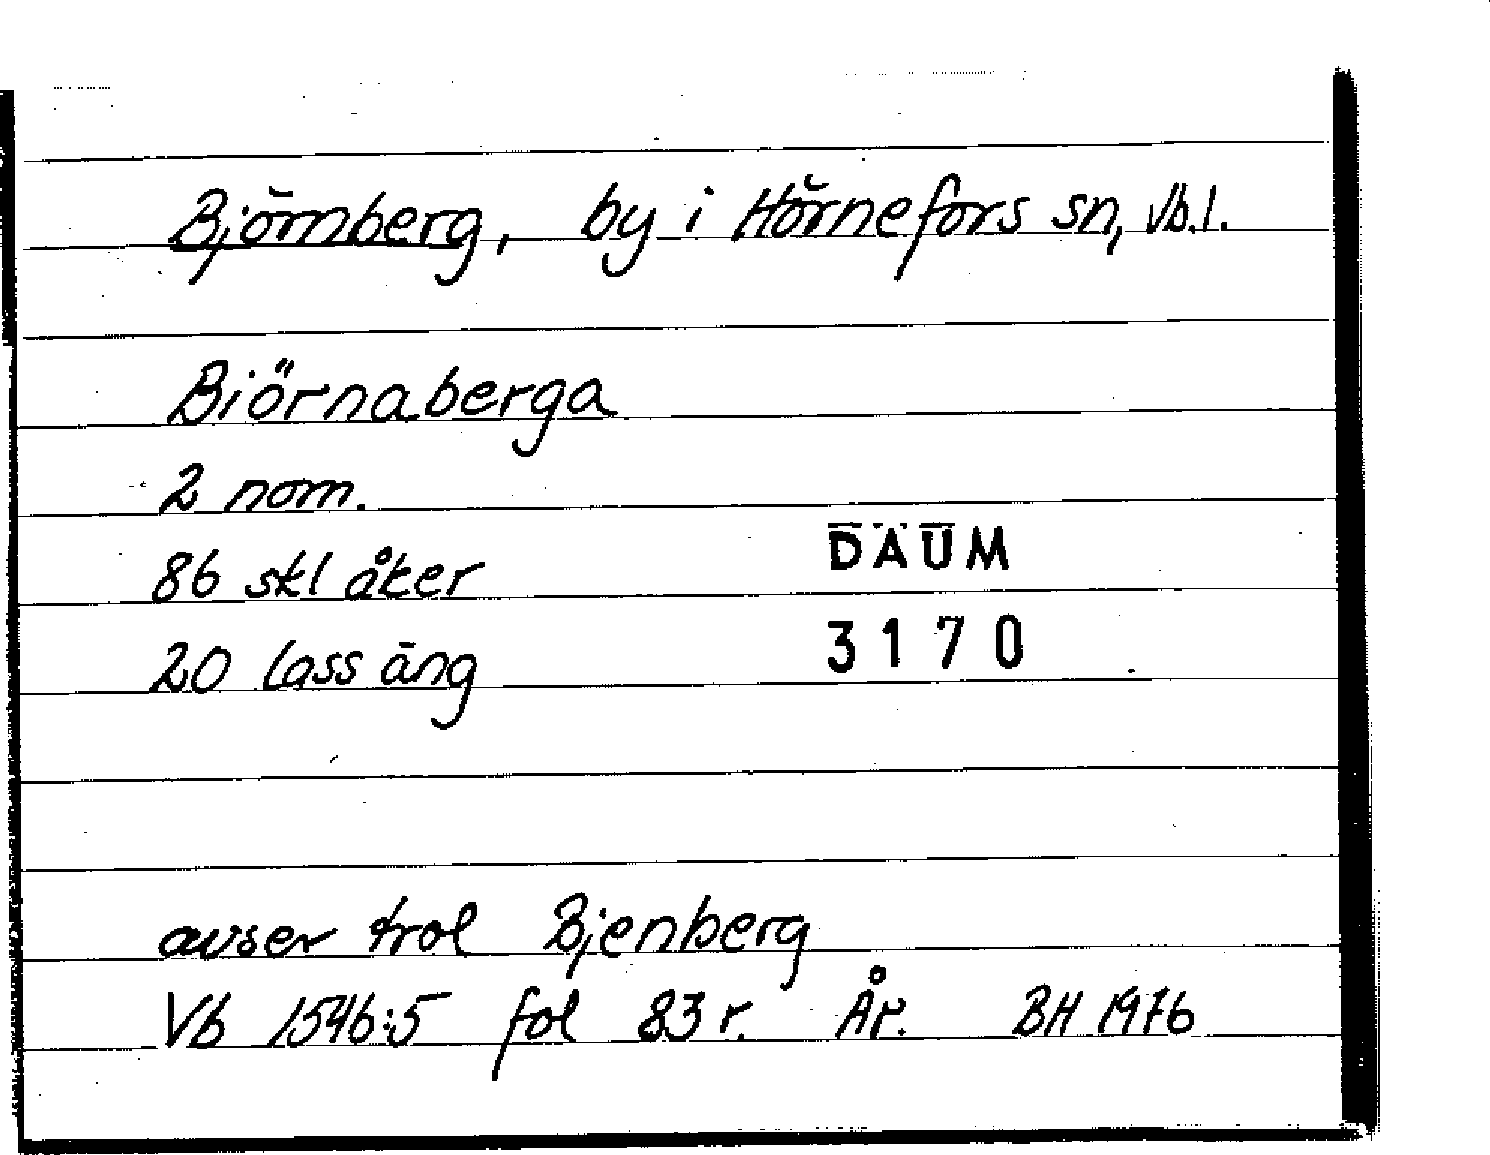 Björnberg, by i Hörnefors sn, Vb.l.
Biörnaberga
2 nom.
86 skl åker
DAUM
20 lass äng
3170
avser trol Bjenberg
Vb 1546:5 fol 83 r. År. BH 1976